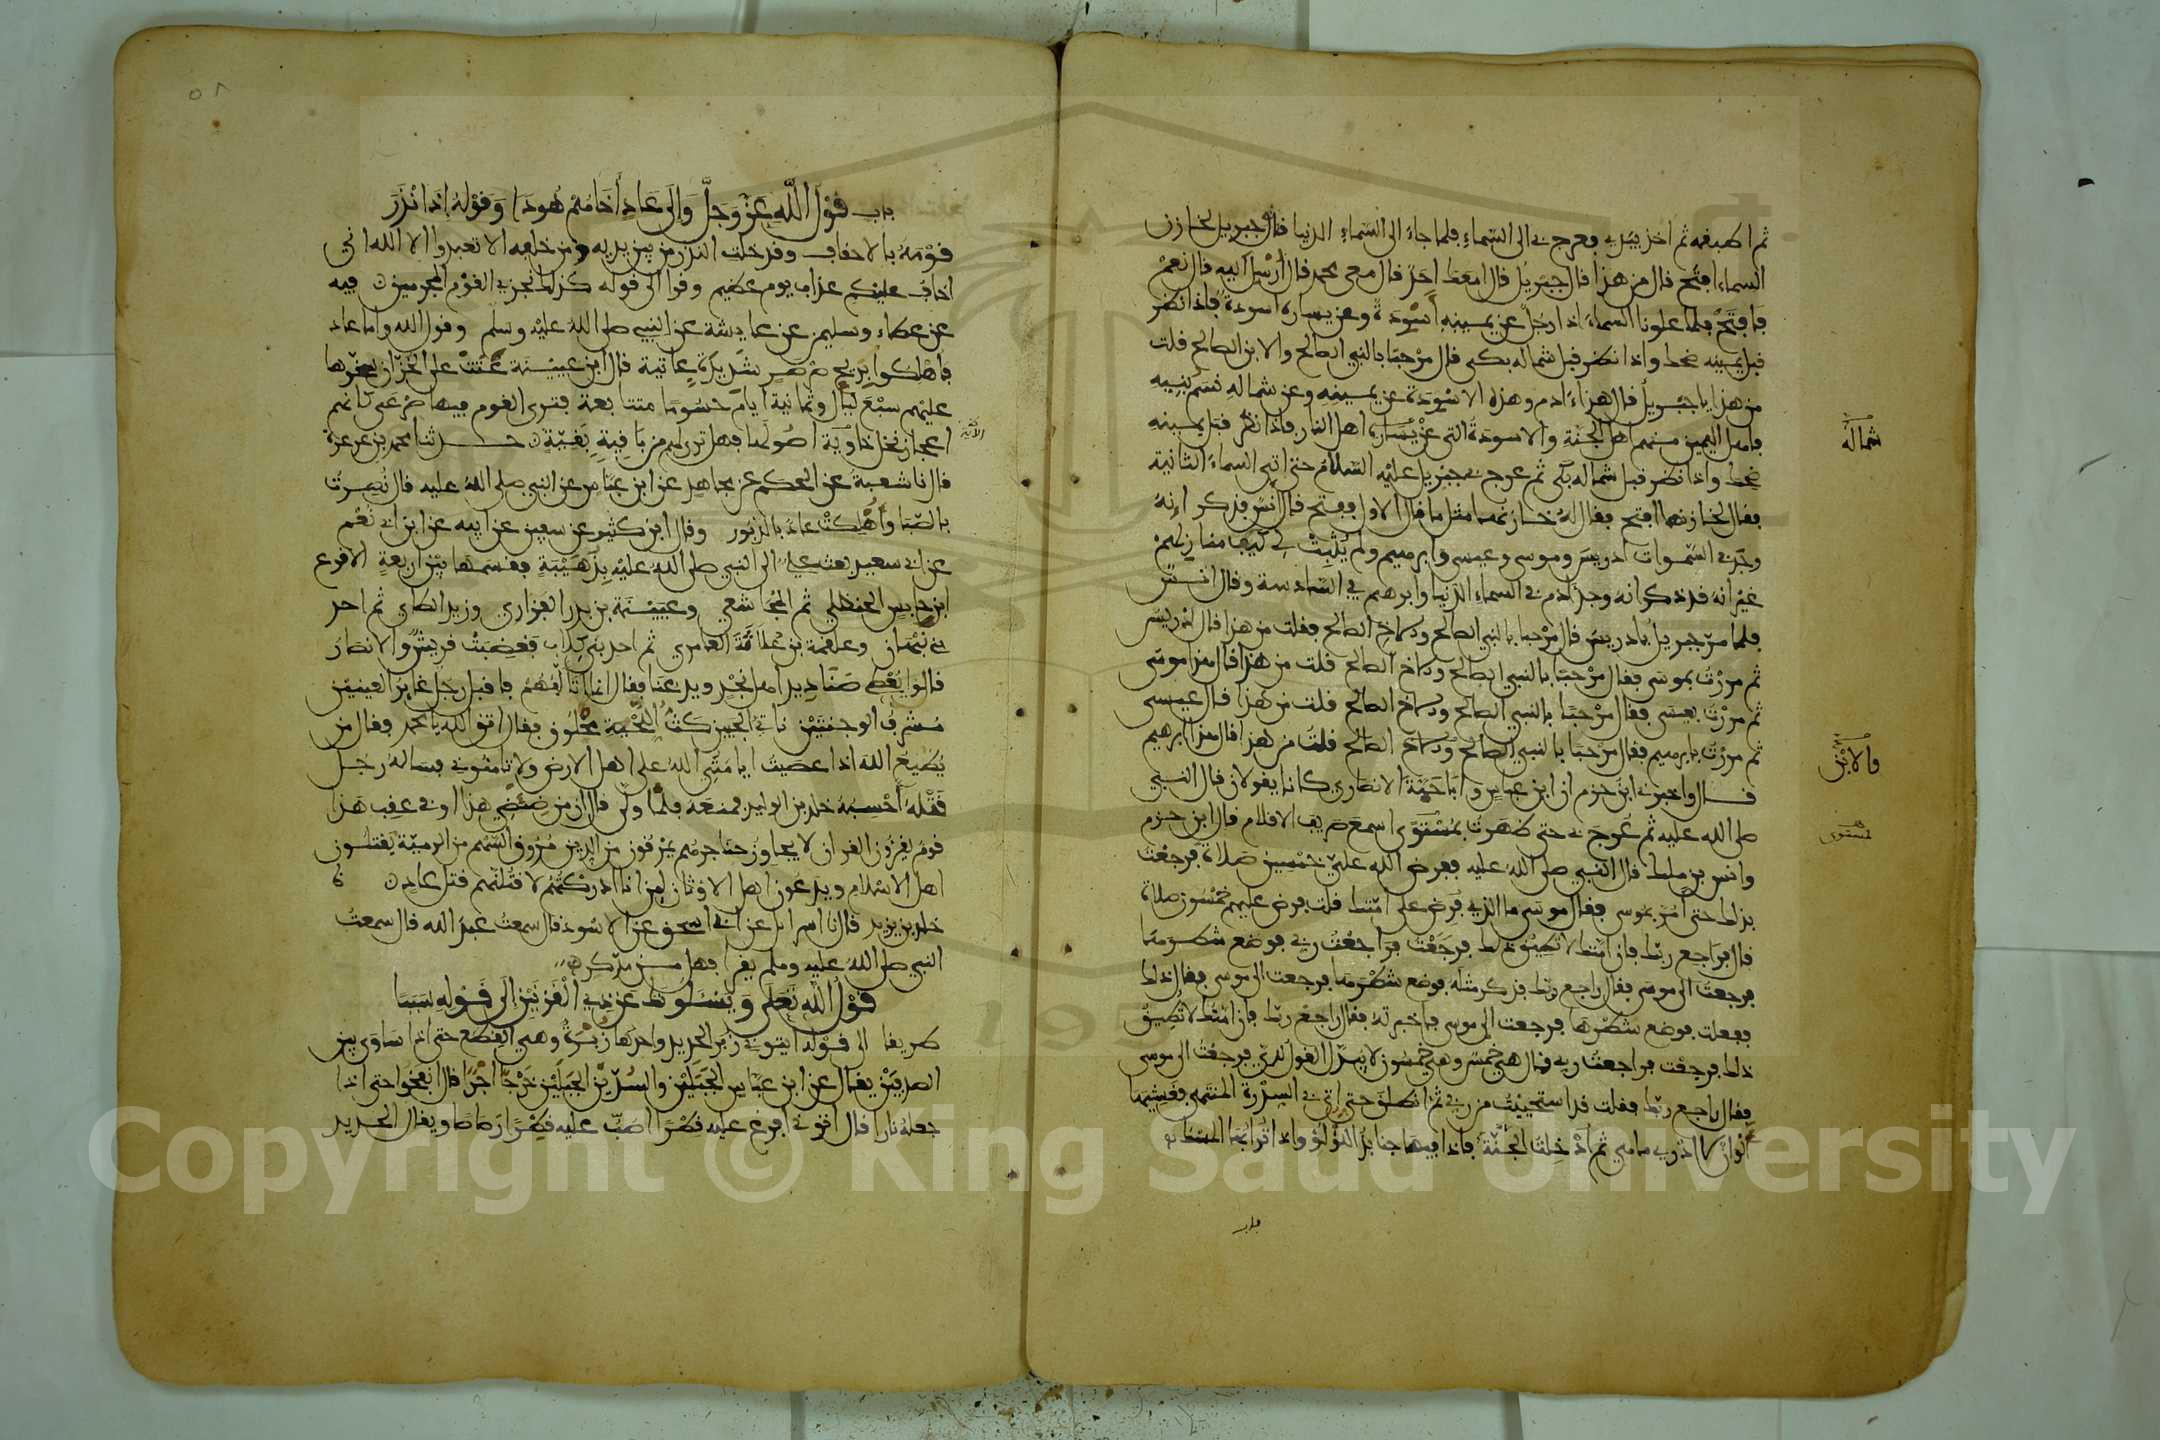 ثم اطبقه ثم اخذ بيدي فعرج بي الى السماء فلما جاء الى السماء الدنيا قال جبريل لخازن
السماء افتح قال من هذا قال جبريل قال امعك احد قال معي محمد قال أرسل اليه قال نعم
فافتح فلما علونا السماء اذا رجل عن يمينه أسودة وعن يساره أسودة فإذا نظر
قبل يمينه ضحك واذا نظر قبل شماله بكى قال مرحبا بالنبي الصالح والابن الصالح قلت
من هذا يا جبريل قال هذا ءادم وهذه الاسودة عن يمينه وعن شماله نسم بنيه
فاهل اليمين منهم اهل الجنة والاسودة التي عن يساره اهل النار فاذا نظر قبل يمينه
ضحك واذا نظر قبل شماله بكى ثم عرج بي جبريل عليه السلام حتى اتى السماء الثانية
فقال لخازنها افتح فقال له خازنها مثل ما قال الاول ففتح قال أنس فذكر انه
وجد في السموات ادريس وموسى وعيسى وابرهيم ولم يثبت لي كيف منازلهم
غير انه قد ذكر انه وجد ادم في السماء الدنيا وابرهيم في السادسة وقال انس
فلما مر جبريل بادريس قال مرحبا بالنبي الصالح والاخ الصالح فقلت من هذا قال ادريس
ثم مررت بموسى فقال مرحبا بالنبي الصالح والاخ الصالح قلت من هذا قال هذا موسى
ثم مررت بعيسى فقال مرحبا بالنبي الصالح والاخ الصالح قلت من هذا قال عيسى
ثم مررت بابرهيم فقال مرحبا بالنبي الصالح والاخ الصالح قلت من هذا قال هذا ابرهيم
قال واخبرني ابن حزم ان ابن عباس وابا حبة الانصاري كانا يقولان قال النبي
صلى الله عليه ثم عرج بي حتى ظهرت بمستوى اسمع صريف الاقلام قال ابن حزم
وانس بن ملك قال النبي صلى الله عليه ففرض الله علي خمسين صلاة فرجعت
بذلك حتى أمر بموسى فقال موسى ما الذي فرض على امتك قلت فرض عليهم خمسون صلاة
قال فراجع ربك فان امتك لا تطيق ذلك فرجعت فراجعت ربي فوضع شطرها
فرجعت الى موسى فقال راجع ربك فذكر مثله فوضع شطرها فرجعت الى موسى فقال ذلك
ففعلت فوضع شطرها فرجعت الى موسى فاخبرته فقال راجع ربك فان امتك لا تطيق
ذلك فرجعت فراجعت ربي فقال هي خمس وهي خمسون لا يبدل القول لدي فرجعت الى موسى
فقال راجع ربك فقلت قد استحييت من ربي ثم انطلق حتى اتى بي السدرة المنتهى فغشيها
ألوان لا ادري ما هي ثم أدخلت الجنة فاذا فيها جنابذ اللؤلؤ واذا ترابها المسك
باب
شماله
والابن
لمستوى
٥٨
باب قول الله عز وجل وإلى عاد أخاهم هودا وقوله إذ انذر
قومه بالاحقاف وقد خلت النذر من بين يديه ومن خلفه الا تعبدوا الا الله اني
اخاف عليكم عذاب يوم عظيم وقرا الى قوله كذلك نجزي القوم المجرمين فيه
عن عطاء وسليمن عن عايشة عن النبي صلى الله عليه وسلم وقول الله واما عاد
فأهلكوا بريح صرصر شديدة عاتية قال ابن عيينة عتت على الخزان سخرها
عليهم سبع ليال وثمانية ايام حسوما متتابعة فترى القوم فيها صرعى كانهم
اعجاز نخل خاوية اصولها فهل ترى لهم من باقية بقية حدثنا محمد بن عرعرة
قال نا شعبة عن الحكم عن مجاهد عن ابن عباس عن النبي صلى الله عليه قال نصرت
بالصبا وأهلكت عاد بالدبور وقال ابن كثير عن سفين عن ابيه عن ابن ابي نعم
عن ابي سعيد بعث علي الى النبي صلى الله عليه بذهيبة فقسمها بين اربعة الاقرع
ابن حابس الحنظلي ثم المجاشعي وعيينة بن بدر الفزاري وزيد الطاي ثم احد
بني نبهان وعلقمة بن علاثة العامري ثم احد بني كلاب فغضبت قريش والانصار
قالوا يعطي صناديد اهل نجد ويدعنا فقال انما اتالفهم فاقبل رجل غاير العينين
مشرف الوجنتين ناتئ الجبين كث اللحية محلوق فقال اتق الله يا محمد فقال من
يطيع الله اذا عصيت ايامنني الله على اهل الارض ولا تامنوني فساله رجل
قتله أحسبه خلد بن الوليد فمنعه فلما ولى قال ان من ضئضئ هذا او في عقب هذا
قوم يقرون القرءان لا يجاوز حناجرهم يمرقون من الدين مروق السهم من الرمية يقتلون
اهل الاسلام ويدعون اهل الاوثان لين انا ادركتهم لاقتلنهم قتل عاد
خلد بن يزيد قال نا اسراءيل عن ابي اسحق عن الاسود قال سمعت عبد الله قال سمعت
النبي صلى الله عليه وسلم يقرا فهل من مدكر
قول الله تعلى ويسئلونك عن ذي القرنين إلى قوله سببا
طريقا الى قوله ايتوني زبر الحديد واحدها زبرة وهي القطع حتى اذا ساوى بين
الصدفين يقال عن ابن عباس الجبلين والسدين الجبلين خرجا اجرا قال انفخوا حتى اذا
جعله نارا قال اتوني افرغ عليه قطرا اصب عليه قطرا رصاصا ويقال الحديد
Copyright © King Saud University